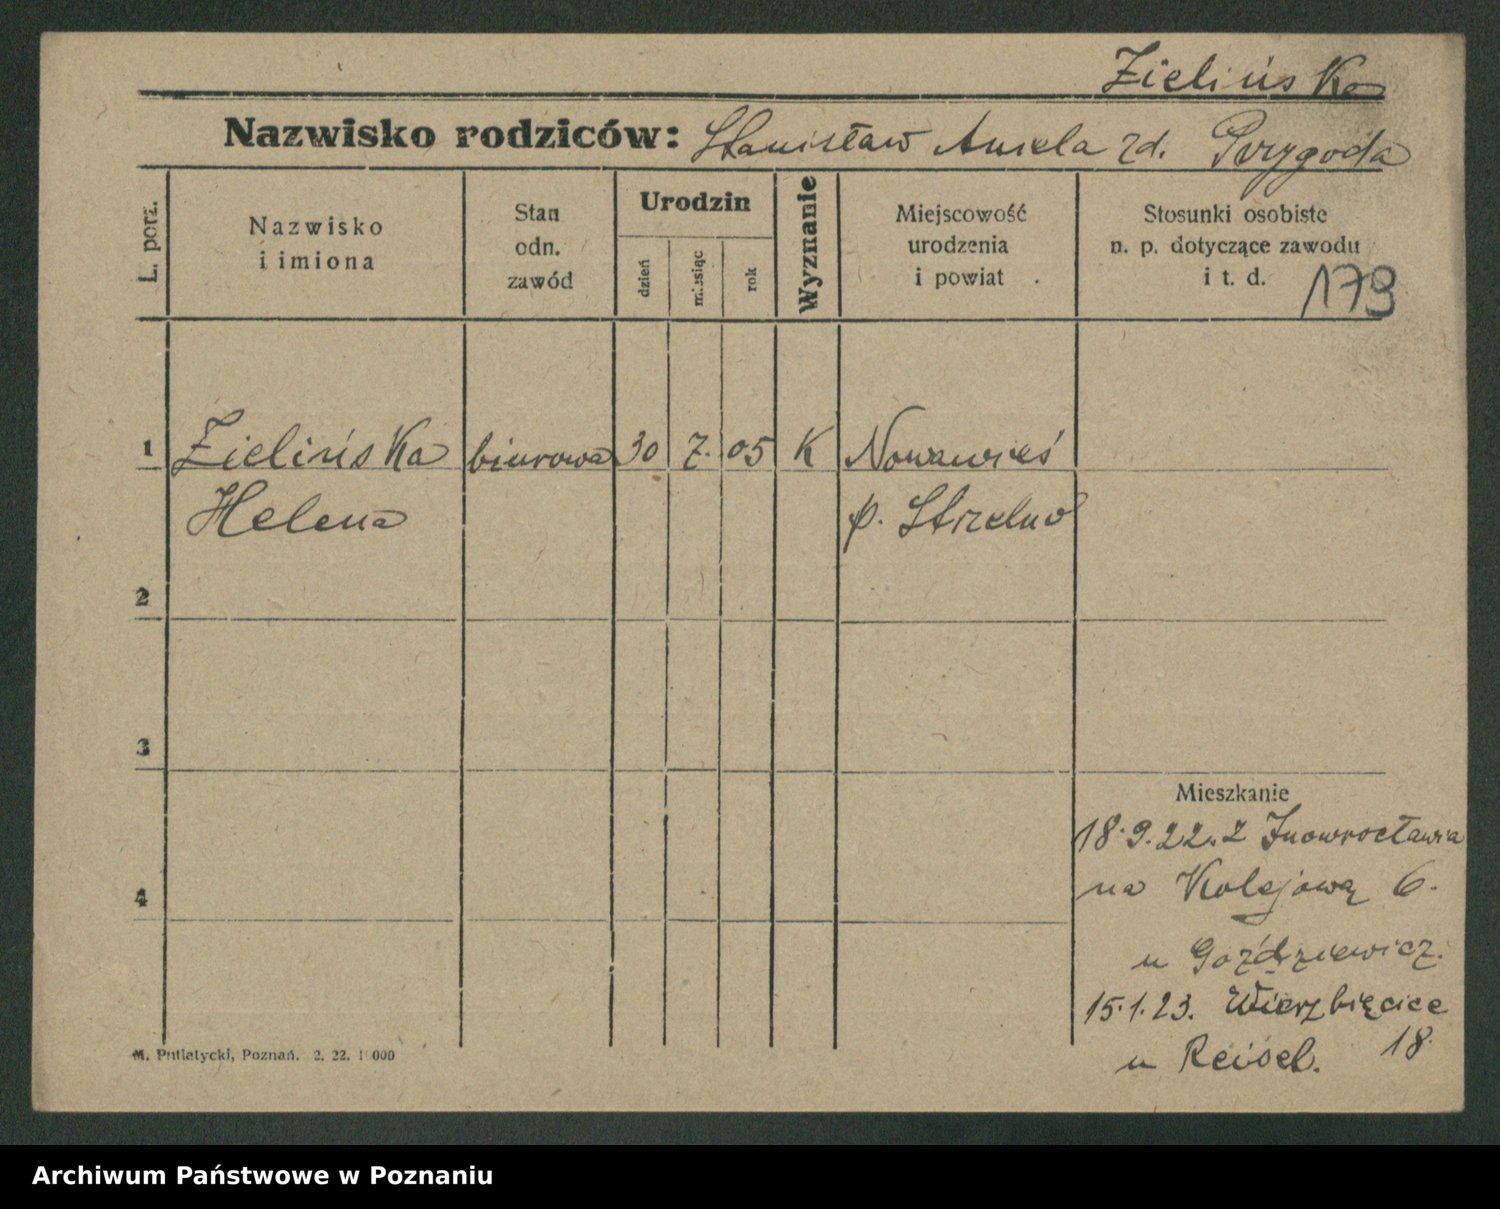 Zielińska
Nazwisko rodziców: Stanisław Aniela zd. Przygoda
L. porz.
Nazwisko
i imiona
Stan
odn.
zawód
Urodzin
dzień
miesiąc
rok
Wyznanie
Miejscowość
urodzenia
i powiat
Stosunki osobiste
n. p. dotyczące zawodu
i t. d.
179
1 Zielińska biurowa 30 7. 05 K Nowawieś
Helena p. Strzelno
2
3
4
Mieszkanie
18.9.22. z Inowrocławia
na Kolejową 6.
u Goździewicz.
15.1.23. Wierzbięcice
18.
u Reisel.
M. Putiatycki, Poznań. 2. 22. 1 000
Archiwum Państwowe w Poznaniu